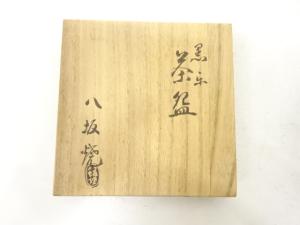 黒楽
茶盌
八坂焼